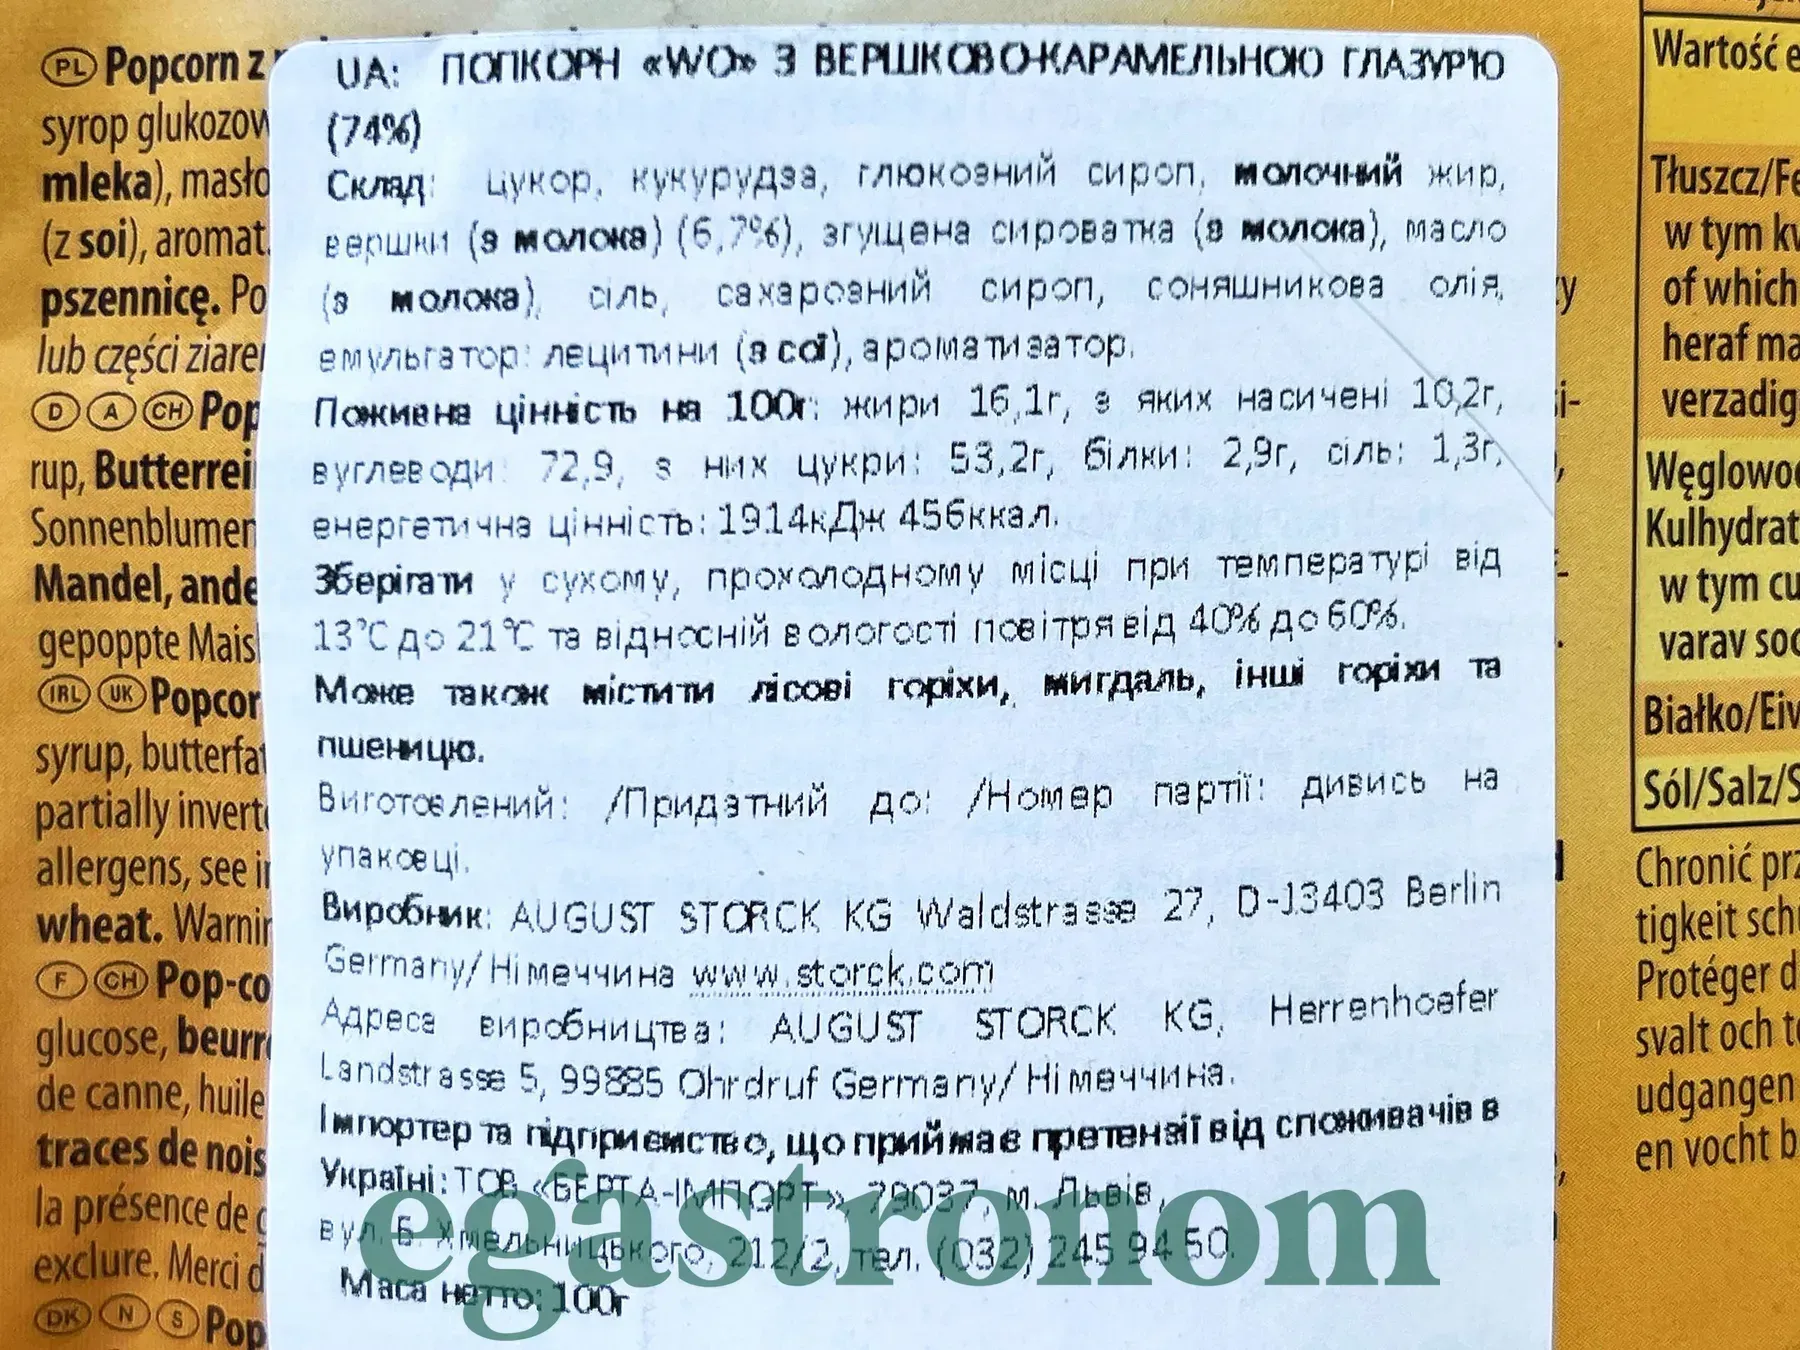 PL Popcorn z
syrop glukozow
mleka), masło
(z soi), aromat.
pszennicę. Po
lub części ziare
D A CH Pop
rup, Butterrei
Sonnenblumen
Mandel, ande
gepoppte Mais
IRL UK Popcor
syrup, butterfat
partially inverte
allergens, see i
wheat. Warnin
F CH Pop-co
glucose, beurre
de canne, huile
traces de nois
la présence de
exclure. Merci d
DK N S Pop
UA: ПОПКОРН «WO» З ВЕРШКОВО-КАРАМЕЛЬНОЮ ГЛАЗУР'Ю
(74%)
Склад: цукор, кукурудза, глюкозний сироп, молочний жир,
вершки (з молока) (6,7%), згущена сироватка (з молока), масло
(з молока), сіль, сахарозний сироп, соняшникова олія,
емульгатор: лецитини (з сої), ароматизатор.
Поживна цінність на 100г: жири 16,1г, з яких насичені 10,2г,
вуглеводи: 72,9, з них цукри: 53,2г, білки: 2,9г, сіль: 1,3г,
енергетична цінність: 1914кДж 456ккал.
Зберігати у сухому, прохолодному місці при температурі від
13°С до 21°С та відносній вологості повітря від 40% до 60%.
Може також містити лісові горіхи, мигдаль, інші горіхи та
пшеницю.
Виготовлений: /Придатний до: /Номер партії: дивись на
упаковці.
Виробник: AUGUST STORCK KG Waldstrasse 27, D-13403 Berlin
Germany/ Німеччина www.storck.com
Адреса виробництва: AUGUST STORCK KG, Herrenhoefer
Landstrasse 5, 99885 Ohrdruf Germany/ Німеччина.
Імпортер та підприємство, що приймає претензії від споживачів в
Україні: ТОВ «БЕРТА-ІМПОРТ» 79037, м. Львів,
вул. Б. Хмельницького, 212/2, тел. (032) 245 94 50.
Маса нетто: 100г
egastronom
Wartość e
Tłuszcz/Fe
w tym kw
of which
heraf ma
verzadig
Węglowod
Kulhydrat
w tym cu
varav soc
Białko/Eiv
Sól/Salz/S
Chronić prz
tigkeit schü
Protéger d
svalt och to
udgangen
en vocht b